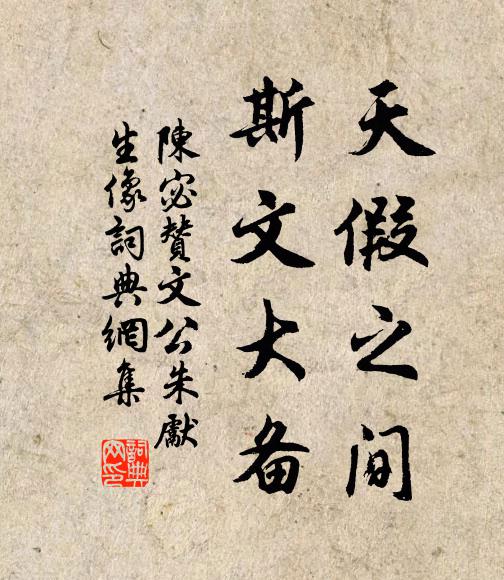 天假之间
斯文大备
陳宓赞文公朱獻
生像詞典網集
詞典网印